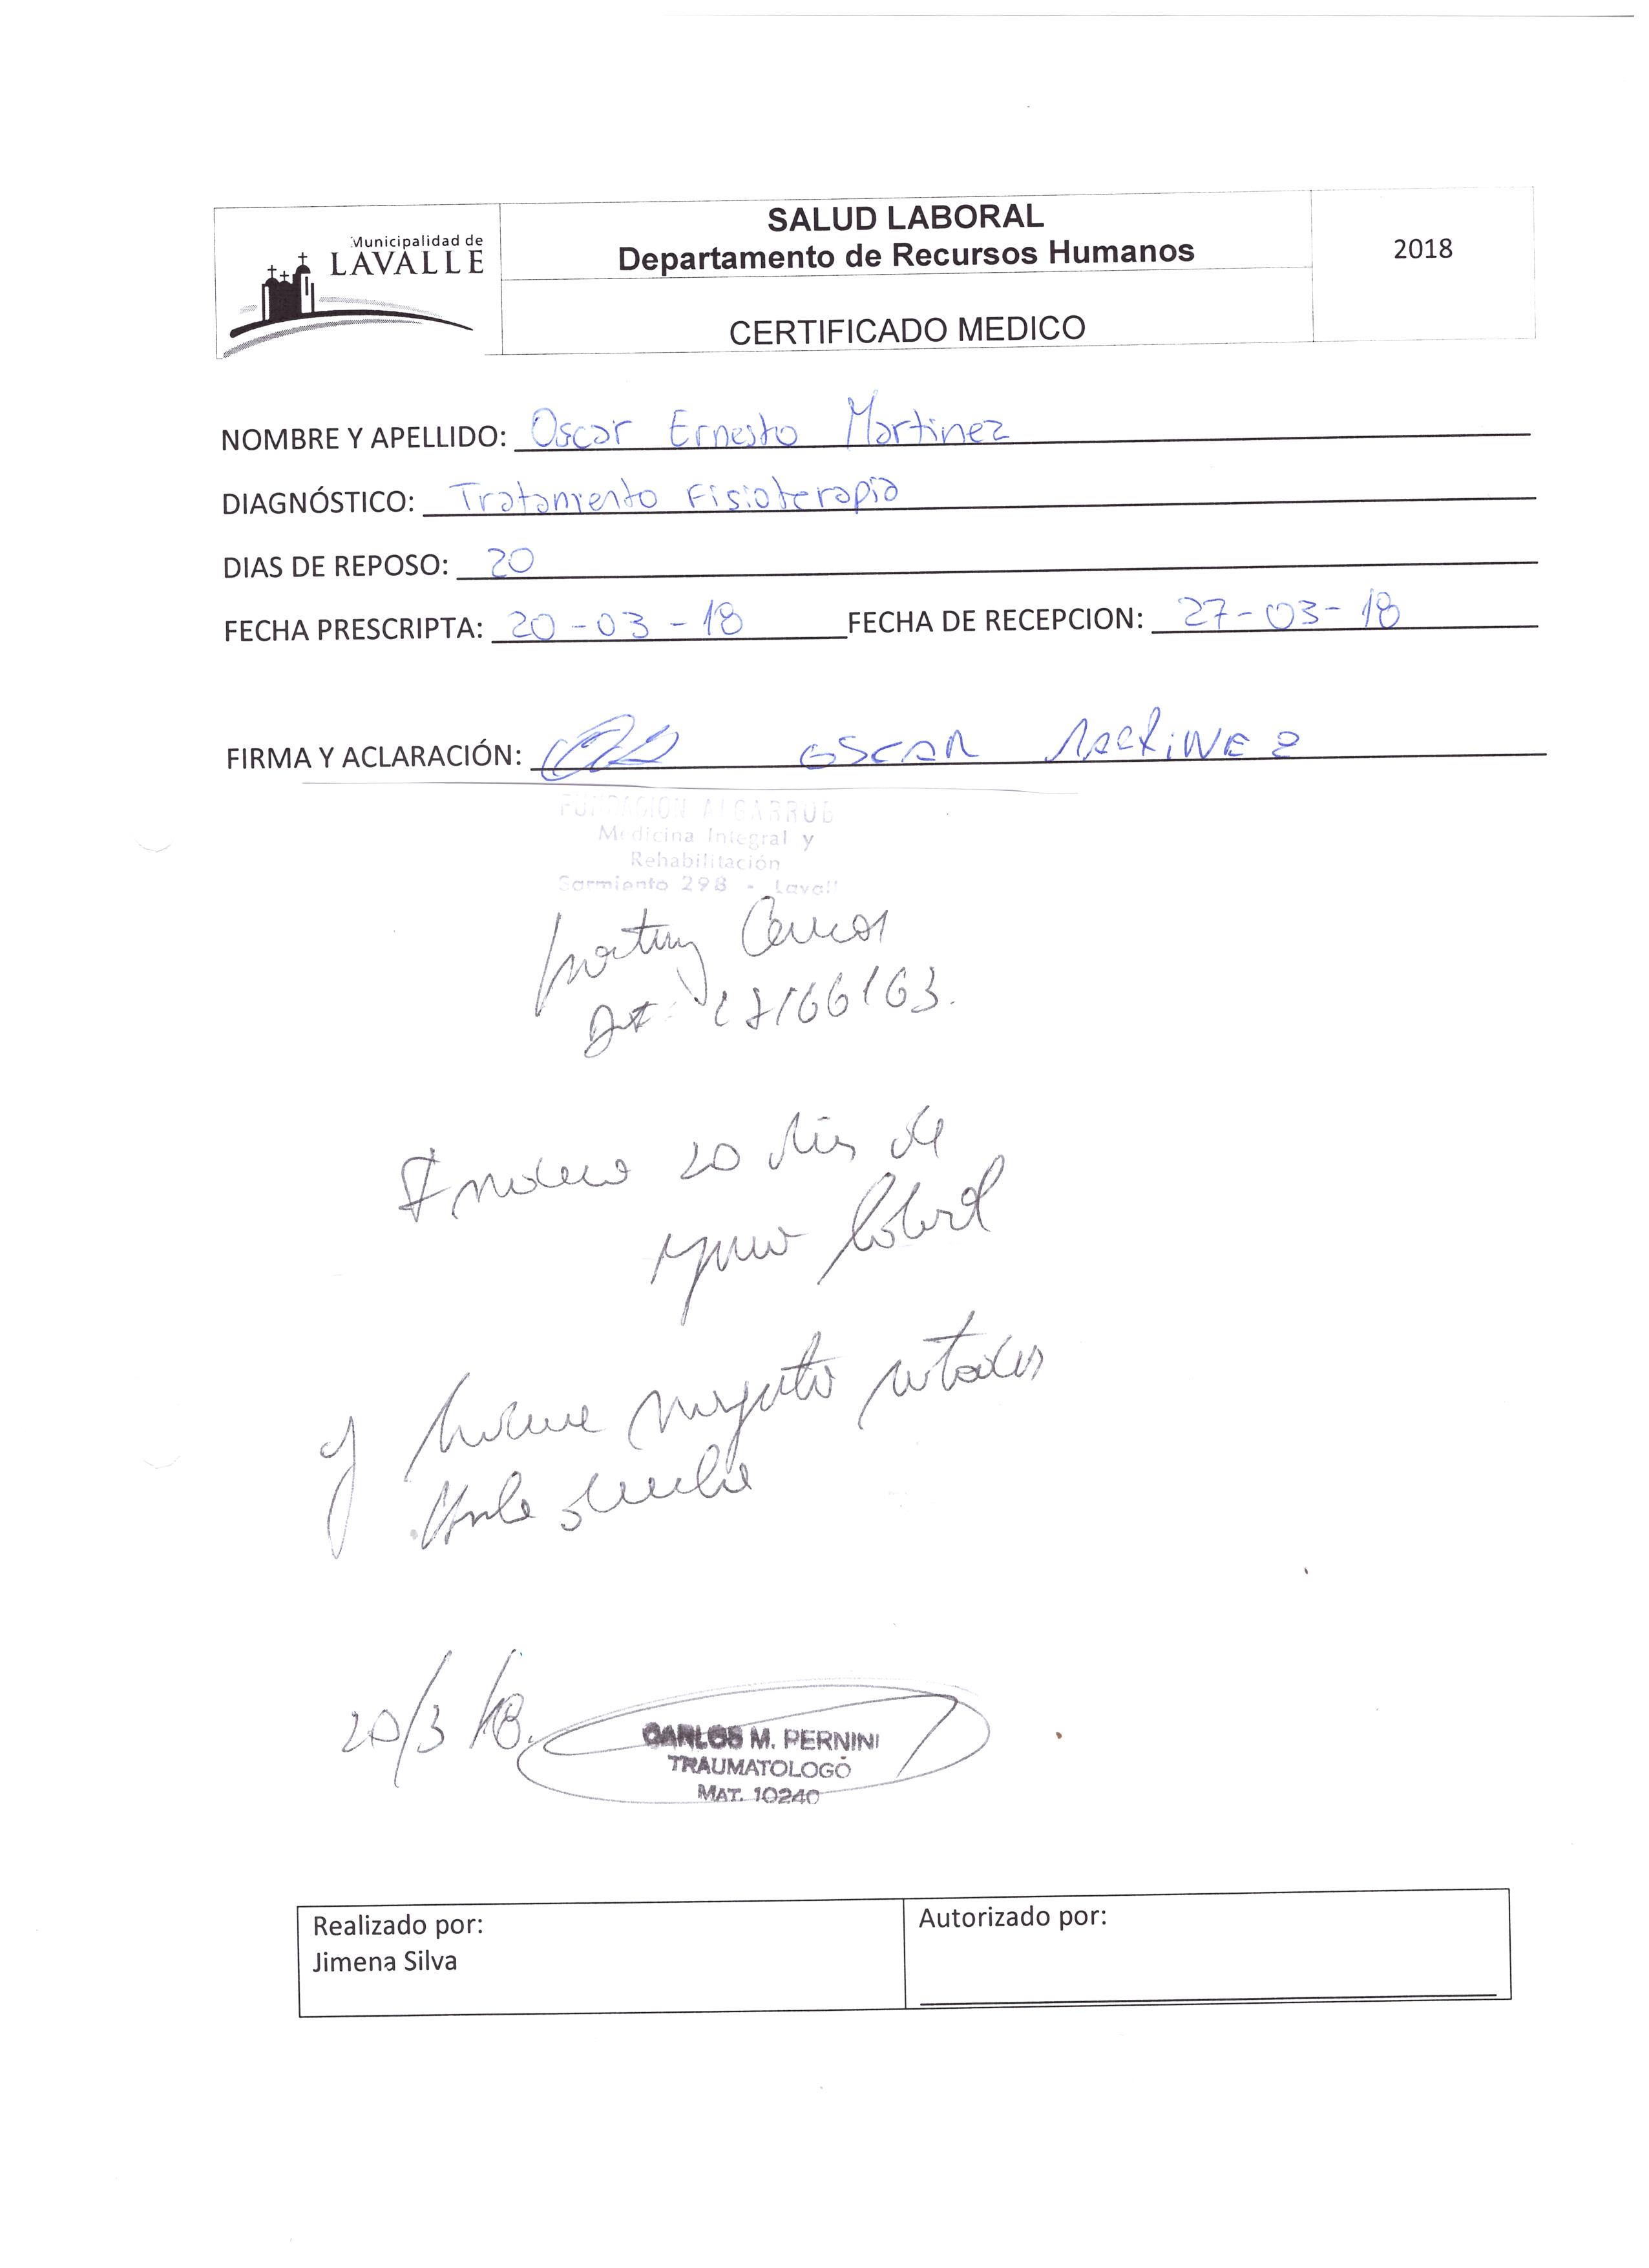 Municipalidad de
LAVALLE
SALUD LABORAL
Departamento de Recursos Humanos
2018
CERTIFICADO MEDICO
NOMBRE Y APELLIDO: Oscar Ernesto Martinez
DIAGNÓSTICO: Tratamiento Fisioterapia
DIAS DE REPOSO: 20
FECHA PRESCRIPTA: 20-03-18 FECHA DE RECEPCION: 27-03-18
FIRMA Y ACLARACIÓN: OSCAR MARTINEZ
FUNDACION ALGARROB
Medicina Integral y
Rehabilitación
Sarmiento 298 - Lavall
20 días de
laboral
y
20/3/18.
CARLOS M. PERNINI
TRAUMATOLOGO
MAT. 10240
Realizado por:
Jimena Silva
Autorizado por: